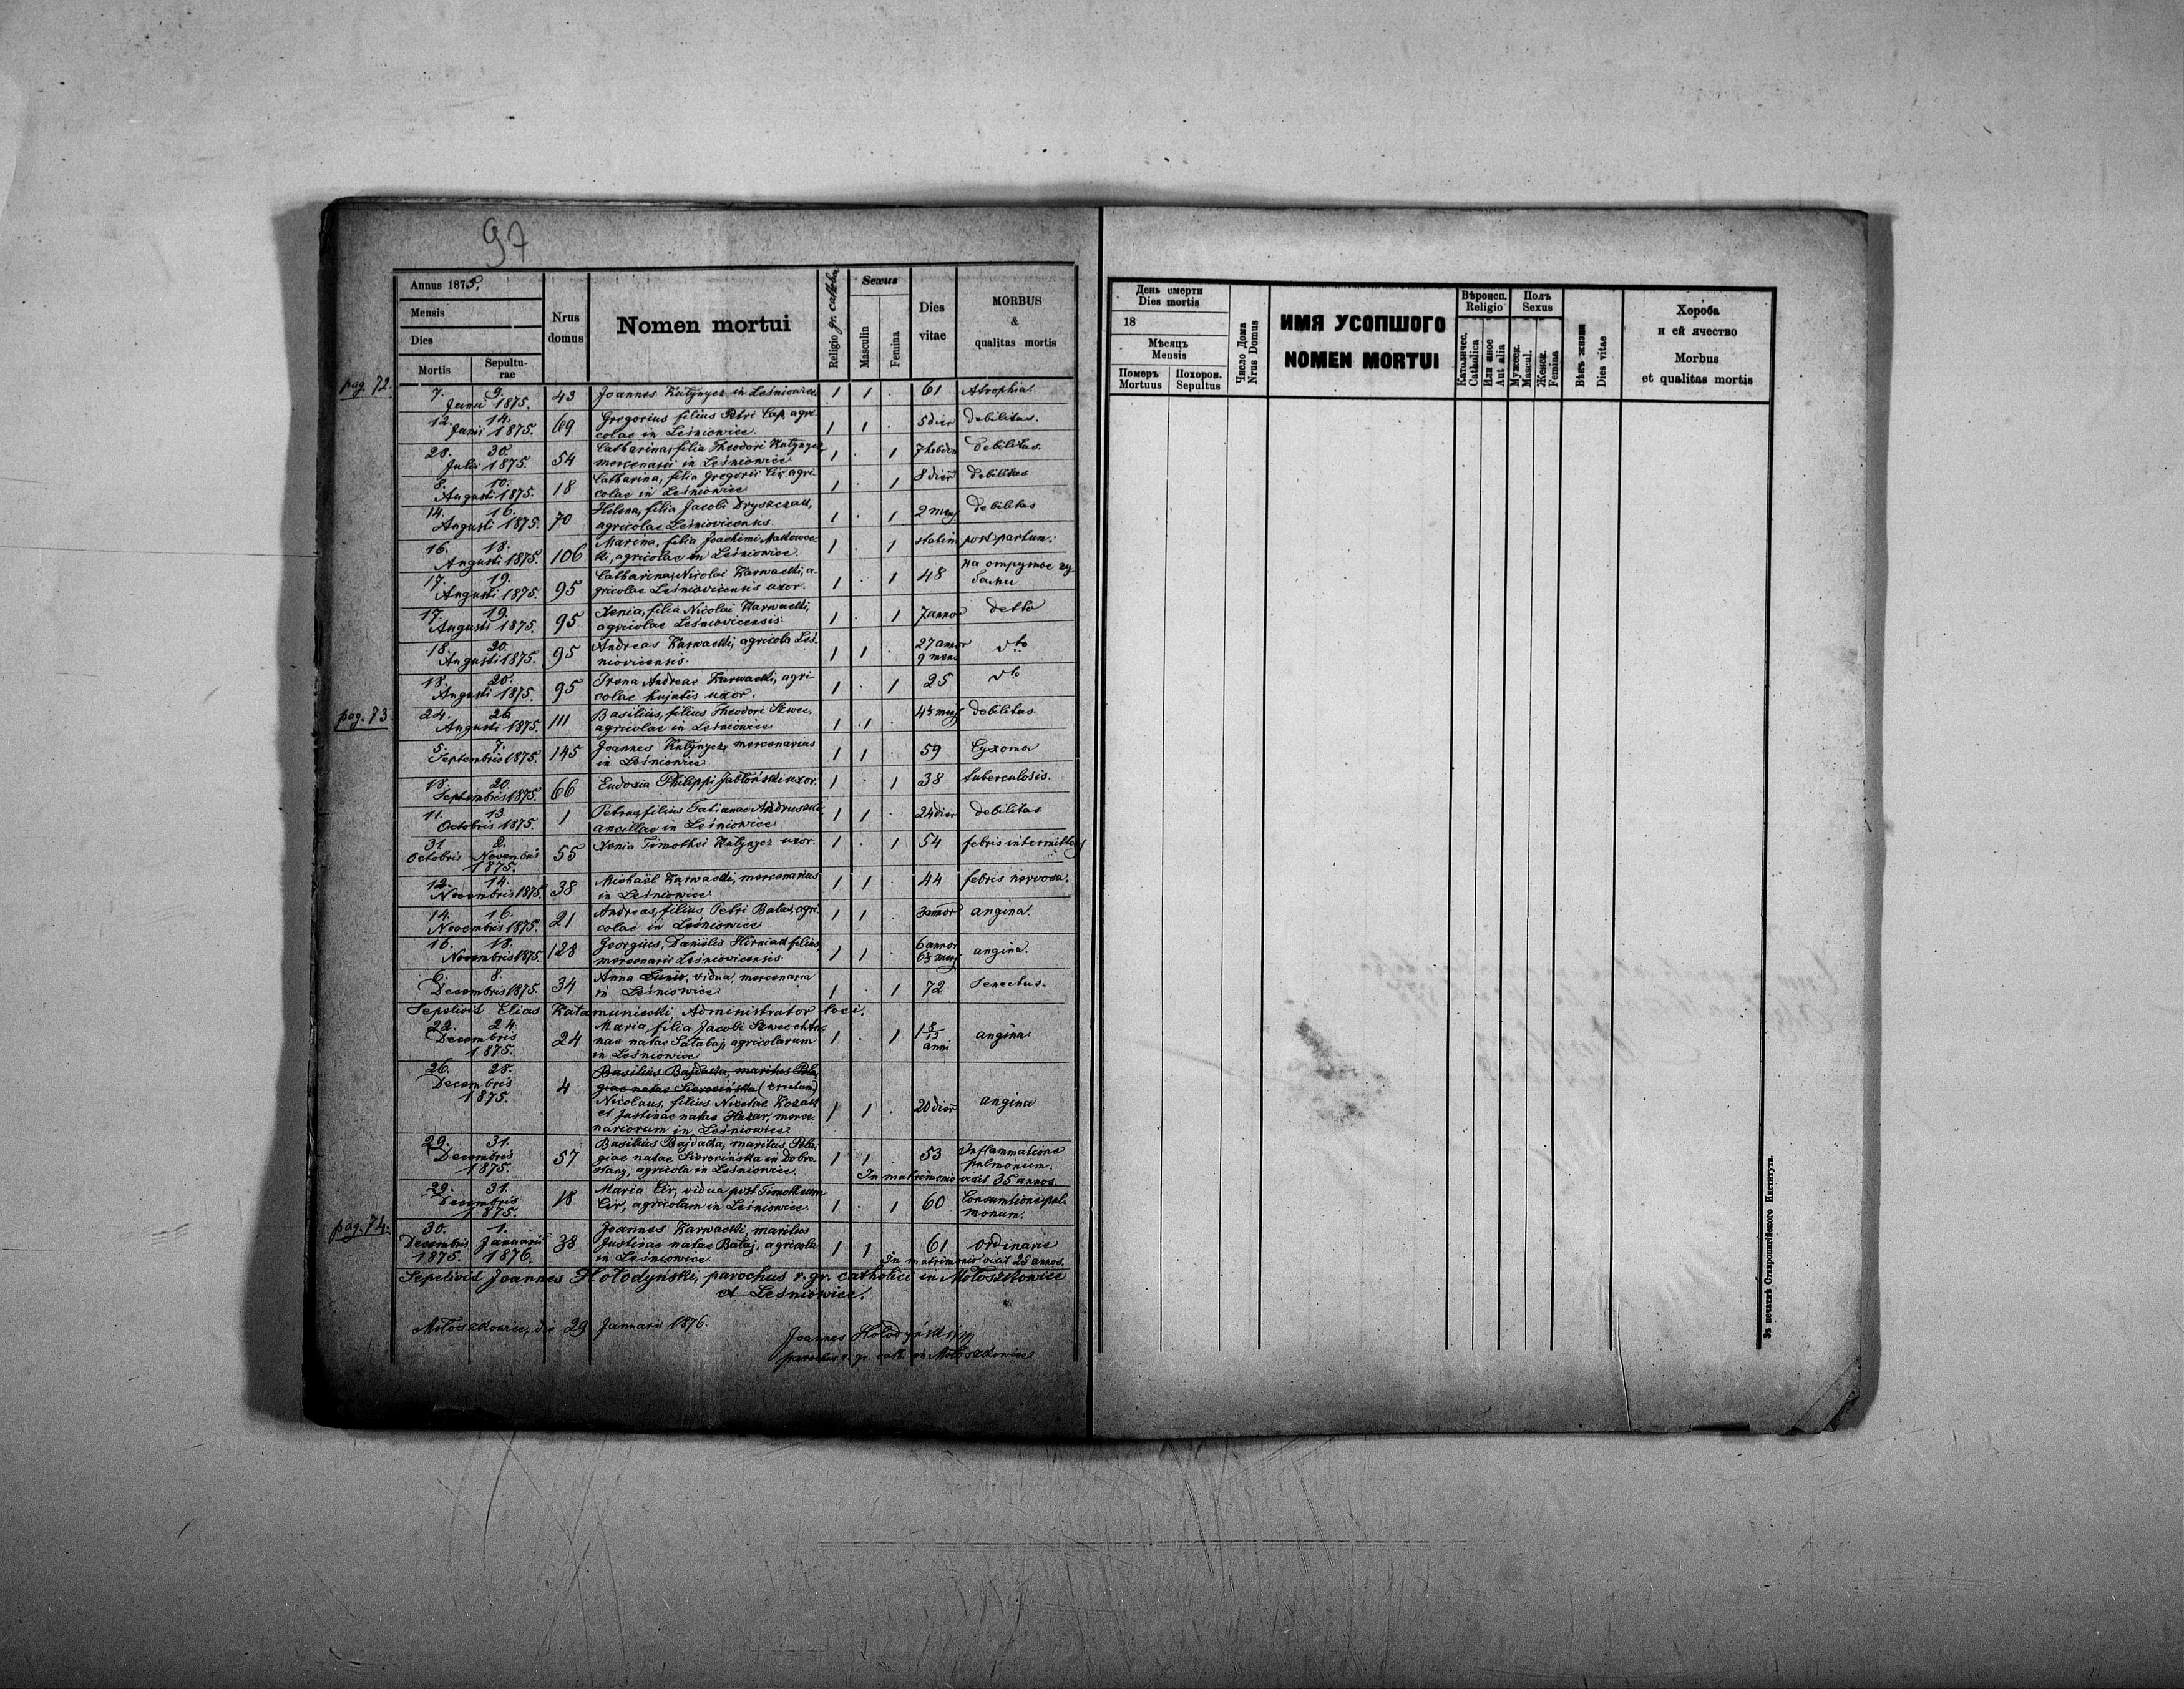 97
Annus 1875.
Mensis
Dies
Mortis
Sepulturae
Nrus domus
Nomen mortui
Religio gr. cathol.
Sexus
Masculin
Femina
Dies vitae
MORBUS & qualitas mortis
pag. 72.
7. 9. 43 Joannes Kutynycz in Leśniowice. 1 1 . 61 Atrophia.
Junii 1875.
12. 14. 69 Gregorius filius Petri Cap, agri- 1 1 . 5 dier debilitas.
Junii 1875. colae in Leśniowice.
28. 30. 54 Catharina, filia Theodori Kutynycz 1 . 1 7 hebdom debilitas.
Julii 1875. mercenarii in Leśniowice
8. 10. 18 Catharina, filia Gregorii Cir, agri- 1 . 1 8 dier debilitas
Augusti 1875. colae in Leśniowice
14. 16. 70 Helena, filia Jacobi Dryszczak, 1 . 1 2 mens debilitas
Augusti 1875. agricolae Leśniovicensis.
16. 18. 106 Marina, filia Joachimi 1 . 1 statim post partum.
Augusti 1875. ki, agricolae in Leśniowice.
17. 19. 95 Catharina, Nicolai Karwacki, a- 1 . 1 48 на отруты гу-
Augusti 1875. gricolae Leśniovicensis uxor. бами
17. 19. 95 Xenia, filia Nicolai Karwacki, 1 . 1 7 annor detto
Augusti 1875. agricolae Leśniovicensis.
18. 20. 95 Andreas Karwacki, agricola Leś- 1 1 . 27 annor dto
Augusti 1875. niovicensis. 9 mens
18. 20. 95 Irena Andreae Karwacki, agri- 1 . 1 25 dto
Augusti 1875. colae hujatis uxor.
pag. 73.
24. 26. 111 Basilius, filius Theodori Szwec, 1 1 . 4½ mens debilitas.
Augusti 1875. agricolae in Leśniowice
5. 7. 145 Joannes Kutynycz, mercenarius 1 1 . 59
Septembris 1875. in Leśniowice
18. 20. 66 Eudoxia Philippi Jabłoński uxor. 1 . 1 38 tuberculosis.
Septembris 1875.
11. 13. 1 Petrus, filius Tatianae 1 1 . 24 dier debilitas
Octobris 1875. ancillae in Leśniowice
31 2. 55 Xenia Timothei Kutynycz uxor. 1 . 1 54 febris intermittens
Octobris Novembris
1875.
12. 14. 38 Michaël Karwacki, mercenarius 1 1 . 44 febris nervosa.
Novembris 1875. in Leśniowice
14. 16. 21 Andreas, filius Petri Balas, agri- 1 1 . 3 annor angina.
Novembris 1875. colae in Leśniowice
16. 18. 128 Georgius, Daniëlis Hirniak filius, 1 1 . 6 annor angina.
Novembris 1875. mercenarii Leśniovicensis. 6½ mens
6. 8. 34 Anna vidua, mercenaria 1 . 1 72 Senectus.
Decembris 1875. in Leśniowice
Sepelivit Elias Katamuniecki Administrator loci.
22. 24. 24 Maria, filia Jacobi Szwec et An- 1 . 1 1 8/12 anni angina
Decembris nae natae Satabaj, agricolarum
1875. in Leśniowice
26. 28. 4 Basilius Bajdacka, maritus Pela-
Decembris giae natae Siorocińska (erratum)
1875. Nicolaus, filius Nicetae Kozak 1 1 . 20 dier angina
et Justinae natae Huzar, merce-
nariorum in Leśniowice
29. 31. 57 Basilius Bajdacka, maritus Pela- 1 1 . 53 Inflammatione
Decembris giae natae Siorocińska in Dobro- pulmonum.
1875. stany, agricola in Leśniowice. In matrimonio vixit 35 annos.
29. 31. 18 Maria Cir, vidua post Timotheum 1 . 1 60 Consumtione pul-
Decembris Cir, agricolam in Leśniowice. monum.
1875.
pag. 74.
30. 1. 38 Joannes Karwacki, maritus 1 1 61 ordinarie
Decembris Januarii Justinae natae Bataj, agricola
1875. 1876. in Leśniowice In matrimonio vixit 25 annos.
Sepelivit Joannes Hołodyński, parochus r. gr. catholici in Mołoszkowice
et Leśniowice.
Mołoszkowice, die 29 Januarii 1876.
Joannes Hołodyński
parochus r. gr. cath. in Mołoszkowice
День смерти
Dies mortis
18
Мѣсяцъ
Mensis
Померъ
Mortuus
Похорон.
Sepultus
Число Дома
Nrus Domus
ИМЯ УСОПШОГО
NOMEN MORTUI
Вѣроисп.
Religio
Католичес.
Catholica
Или иное
Aut alia
Полъ
Sexus
Мужеск.
Mascul.
Женск.
Femina
Вѣкъ жизни
Dies vitae
Хороба
и ей ячество
Morbus
et qualitas mortis
Зъ печатнѣ Ставропигійского Института.